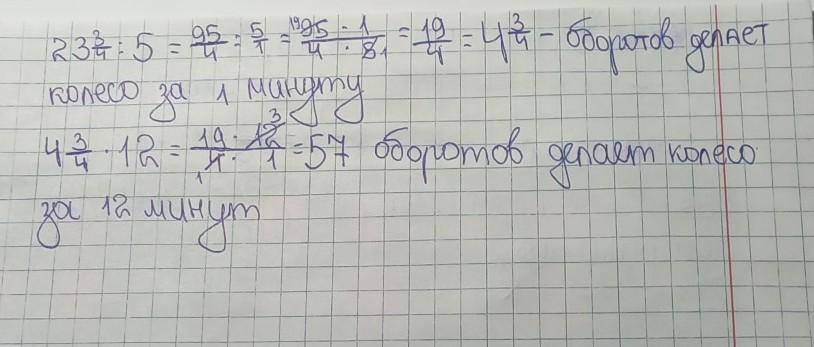 23 3/4 : 5 = 95/4 : 5/1 = (¹⁹95 · 1)/(4 · 5₁) = 19/4 = 4 3/4 - оборотов делает
колесо за 1 минуту
4 3/4 · 12 = (19 · 12³)/(₁4 · 1) = 57 оборотов делает колесо
за 12 минут